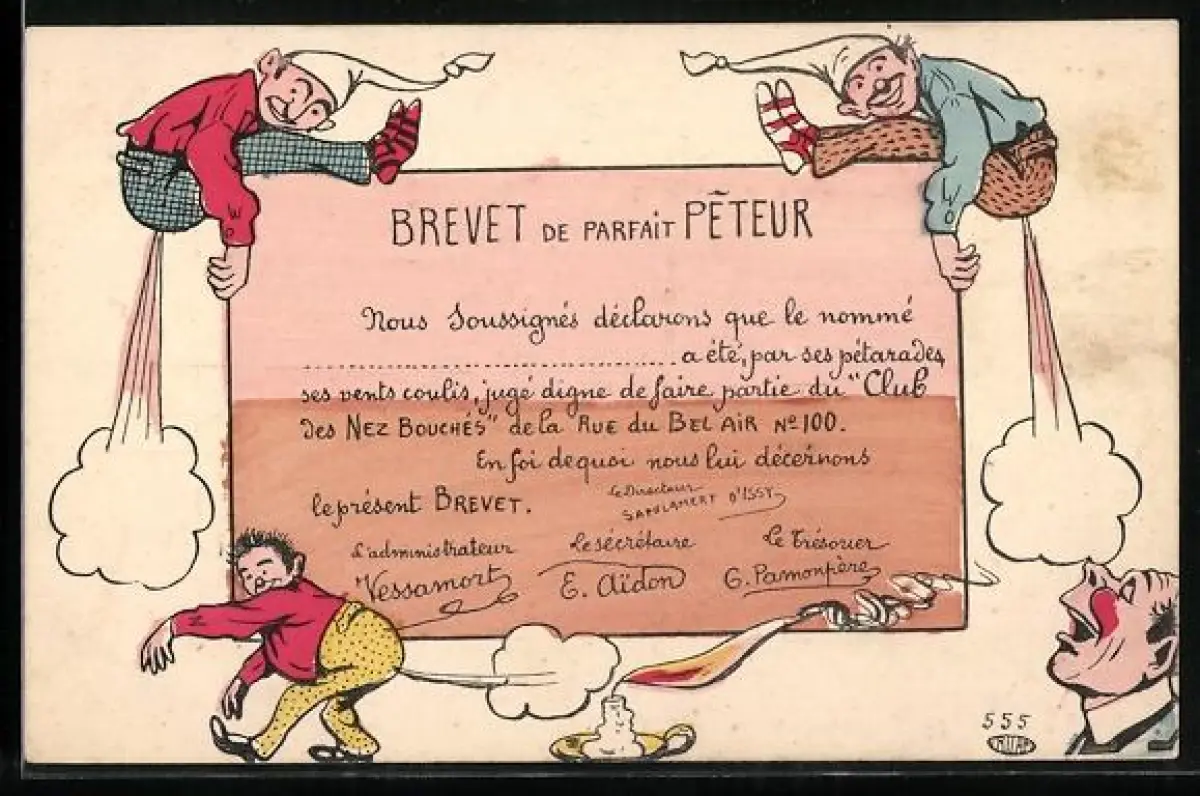 BREVET DE PARFAIT PÊTEUR
Nous Soussignés déclarons que le nommé
a été, par ses pétarades,
ses vents coulis, jugé digne de faire partie du "Club
des NEZ BOUCHÉS" de la RUE du BEL AIR Nº 100.
En foi de quoi nous lui décernons
le présent BREVET.
Le Directeur
D'ISSY
L'administrateur
Vessamort
Le sécrétaire
E. Aïdon
Le Trésorier
G. Pamonpère
555